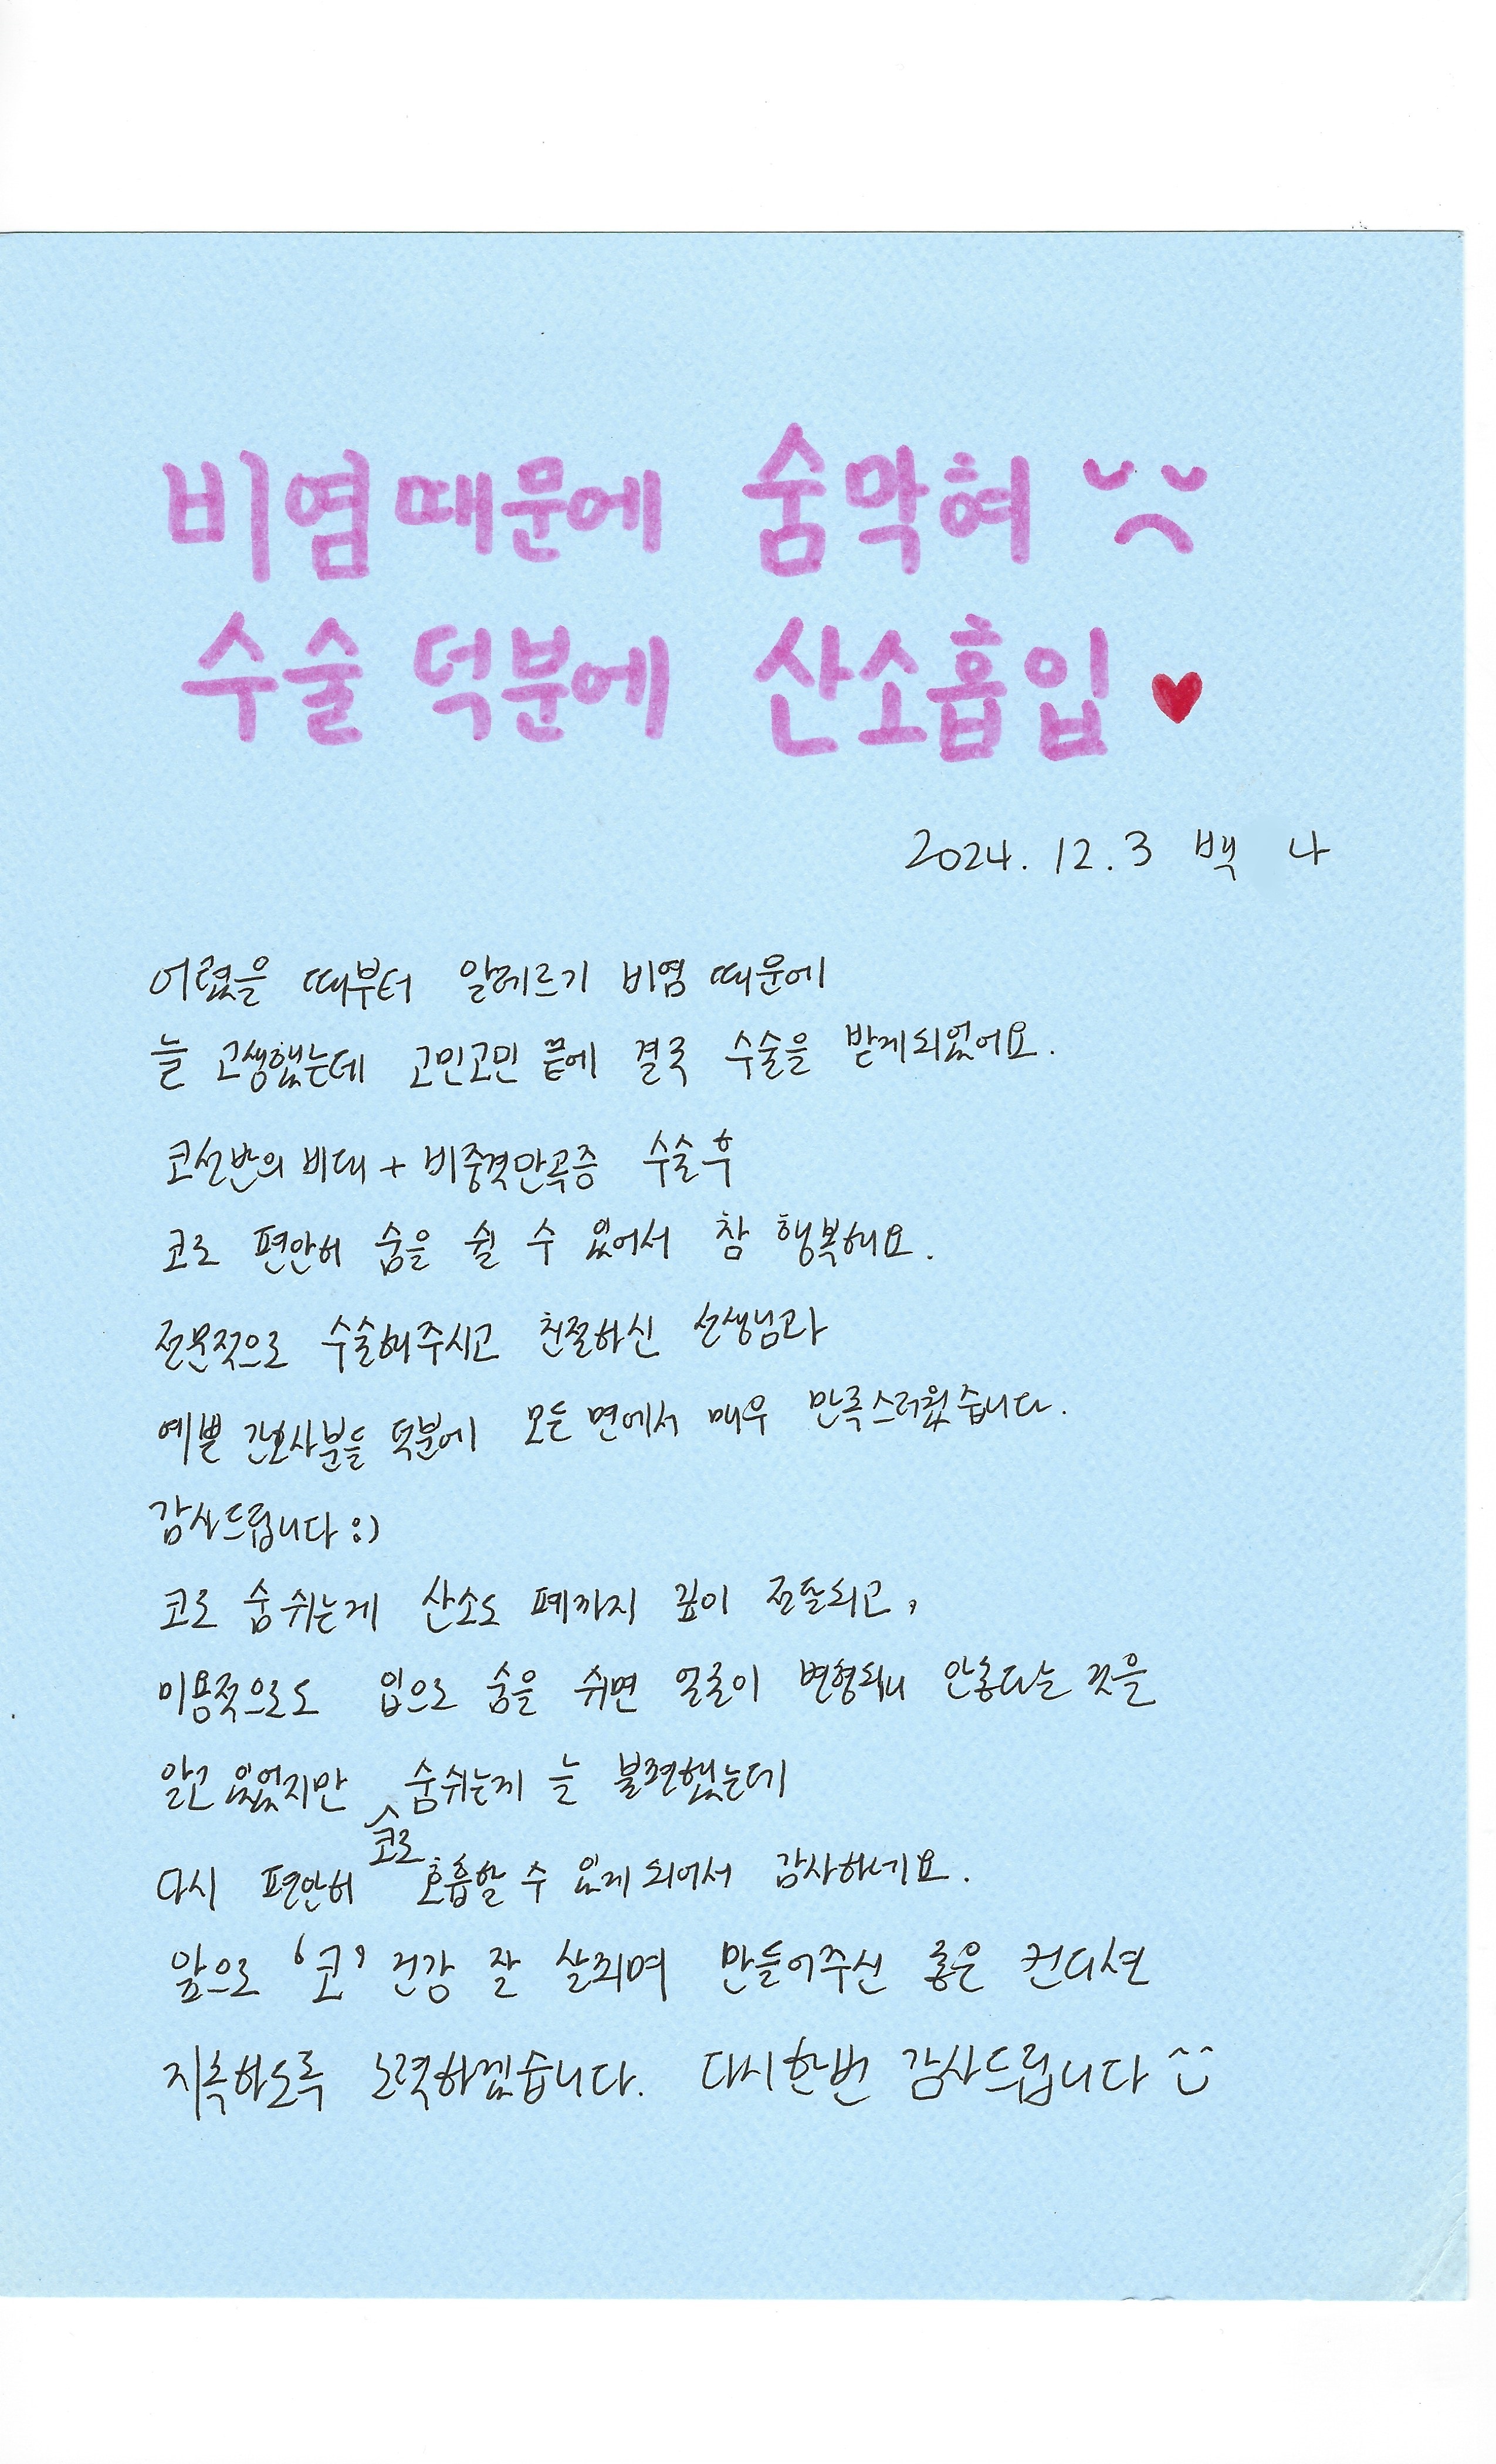 비염때문에 숨막혀
수술 덕분에 산소흡입 ♥
2024. 12. 3 백 나
어렸을 때부터 알레르기 비염 때문에
늘 고생했는데 고민고민 끝에 결국 수술을 받게되었어요.
코선반의 비대 + 비중격만곡증 수술 후
코로 편안히 숨을 쉴 수 있어서 참 행복해요.
전문적으로 수술해주시고 친절하신 선생님과
예쁜 간호사분들 덕분에 모든 면에서 매우 만족스러웠습니다.
감사드립니다 :)
코로 숨쉬는게 산소도 폐까지 깊이 전달되고,
미용적으로도 입으로 숨을 쉬면 얼굴이 변형되니 안좋다는 것을
알고 있었지만 숨쉬는게 늘 불편했는데
다시 편안히 코로 호흡할 수 있게 되어서 감사하네요.
앞으로 '코' 건강 잘 살피며 만들어주신 좋은 컨디션
지속하도록 노력하겠습니다. 다시한번 감사드립니다 ^^